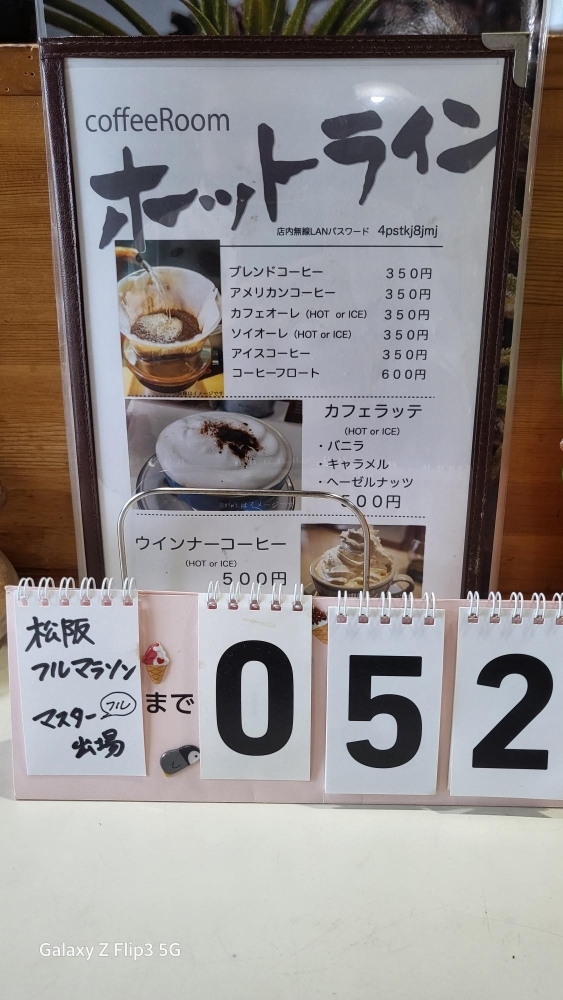 coffeeRoom
ホットライン
店内無線LANパスワード 4pstkj8jmj
ブレンドコーヒー 350円
アメリカンコーヒー 350円
カフェオーレ (HOT or ICE) 350円
ソイオーレ (HOT or ICE) 350円
アイスコーヒー 350円
コーヒーフロート 600円
カフェラッテ
(HOT or ICE)
・バニラ
・キャラメル
・ヘーゼルナッツ
500円
ウインナーコーヒー
(HOT or ICE)
500円
松阪
フルマラソン
マスター フル
出場
まで
0 5 2
Galaxy Z Flip3 5G